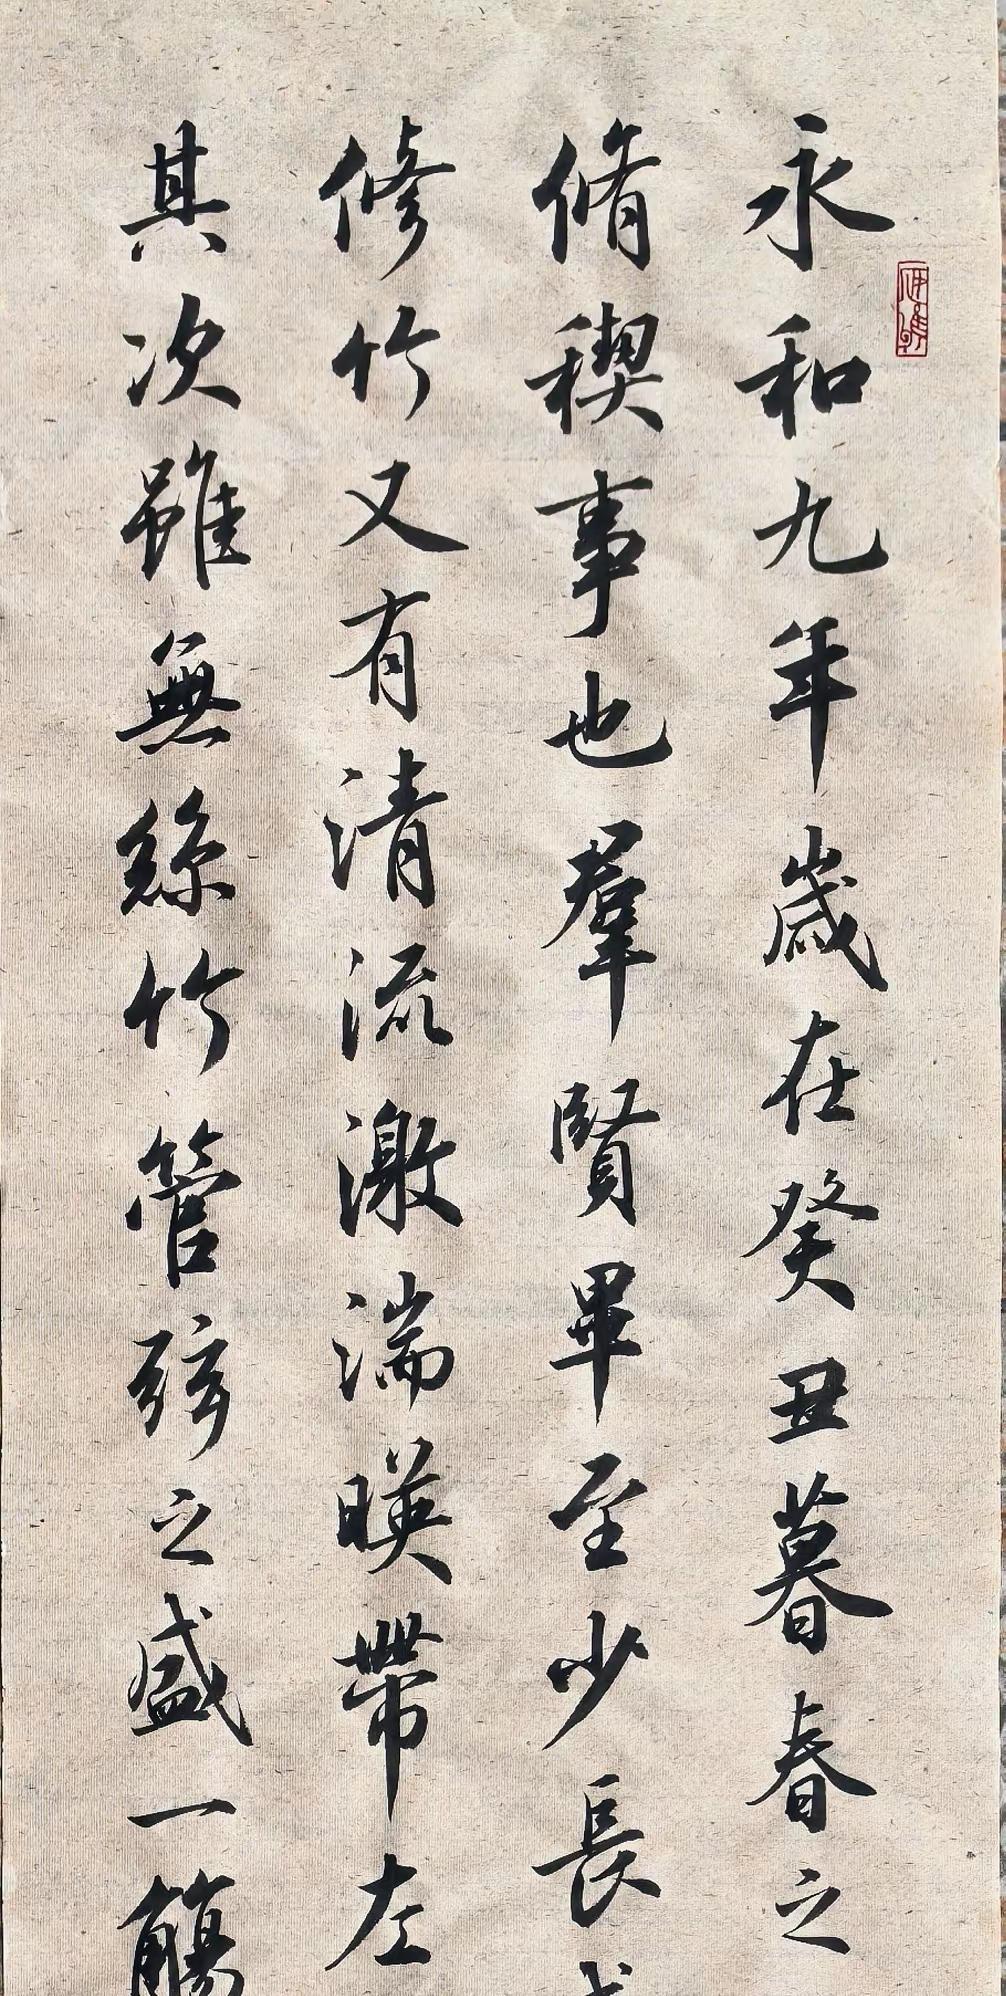 永和九年歲在癸丑暮春之
脩稧事也羣賢畢至少長
修竹又有清流激湍暎帶左
其次雖無絲竹管弦之盛一觴